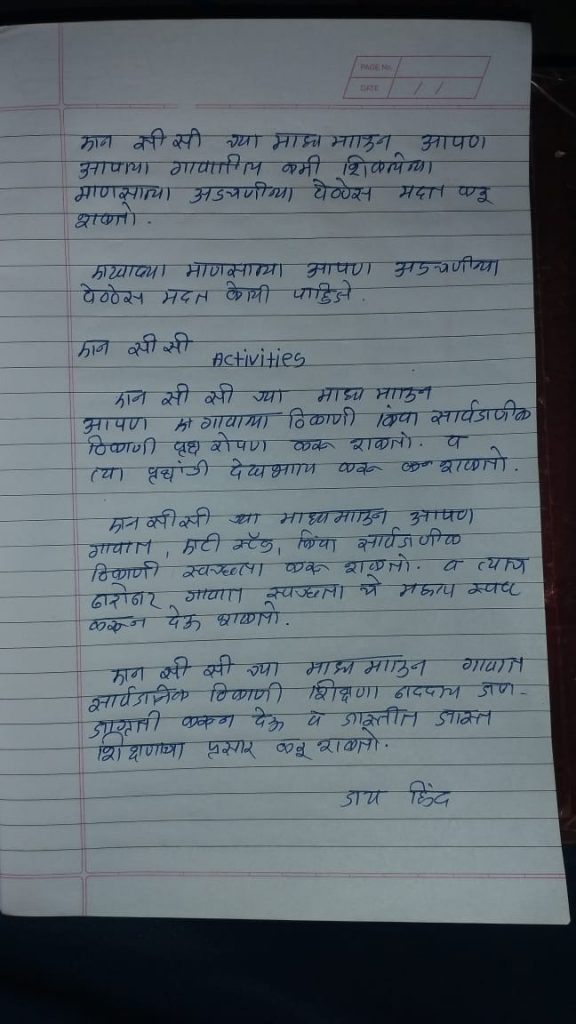 PAGE No.
DATE / /
एन सी सी च्या माध्यमातुन आपण
आपल्या गावातील कमी शिकलेल्या
माणसाला अडचणीच्या वेळेस मदत करू
शकतो.
एखाद्या माणसाला आपण अडचणीच्या
वेळेस मदत केली पाहिजे.
एन सी सी
Activities
एन सी सी च्या माध्यमातुन
आपण गावाच्या ठिकाणी किंवा सार्वजनीक
ठिकाणी वृक्ष रोपण करू शकतो. व
त्या वृक्षांची देखभाल करू शकतो.
एन सी सी च्या माध्यमातुन आपण
गावात, एस टी स्टॅंड, किंवा सार्वजनीक
ठिकाणी स्वच्छता करू शकतो. व त्याच
बरोबर गावात स्वच्छता चे महत्व स्पष्ट
करून देऊ शकतो.
एन सी सी च्या माध्यमातुन गावात
सार्वजनिक ठिकाणी शिक्षणा बद्दल जन-
जागृती करून देऊ व जास्तीत जास्त
शिक्षणाचा प्रसार करू शकतो.
जय हिंद